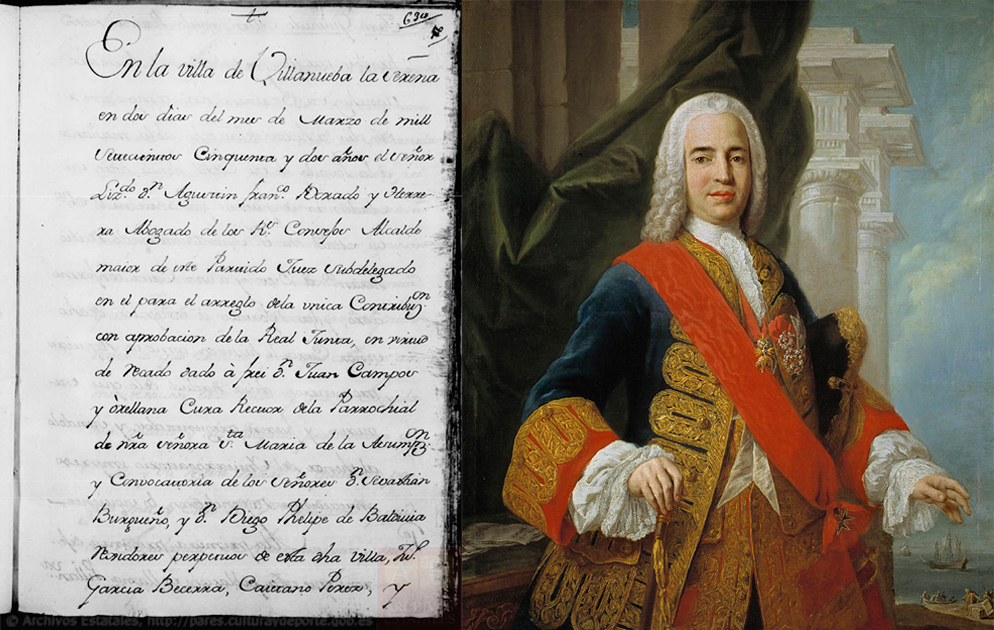 630
En la villa de Villanueba la Serena
en dos dias del mes de Marzo de mill
Setecientos Cinquenta y dos años el señor
Liz.do d.n Agustin fran.co Dorado y Herre-
ra Abogado de los R.s Consejos Alcalde
maior de este Partido Juez subdelegado
en el para el arreglo dela vnica Contribu.on
con aprobacion de la Real Junta, en virtud
de recado dado à frei d.n Juan Campos
y òrellana Cura Rector dela Parrochial
de nrã señora s.ta Maria de la Assump.on
y Convocatoria de los Señores d.n Sevastian
Burgueño, y d.n Diego Phelipe de Baldivia
Rexidores perpetuos de esta dha villa,
Garcia Becerra, Caietano Perez, y
© Archivos Estatales, http://pares.culturaydeporte.gob.es